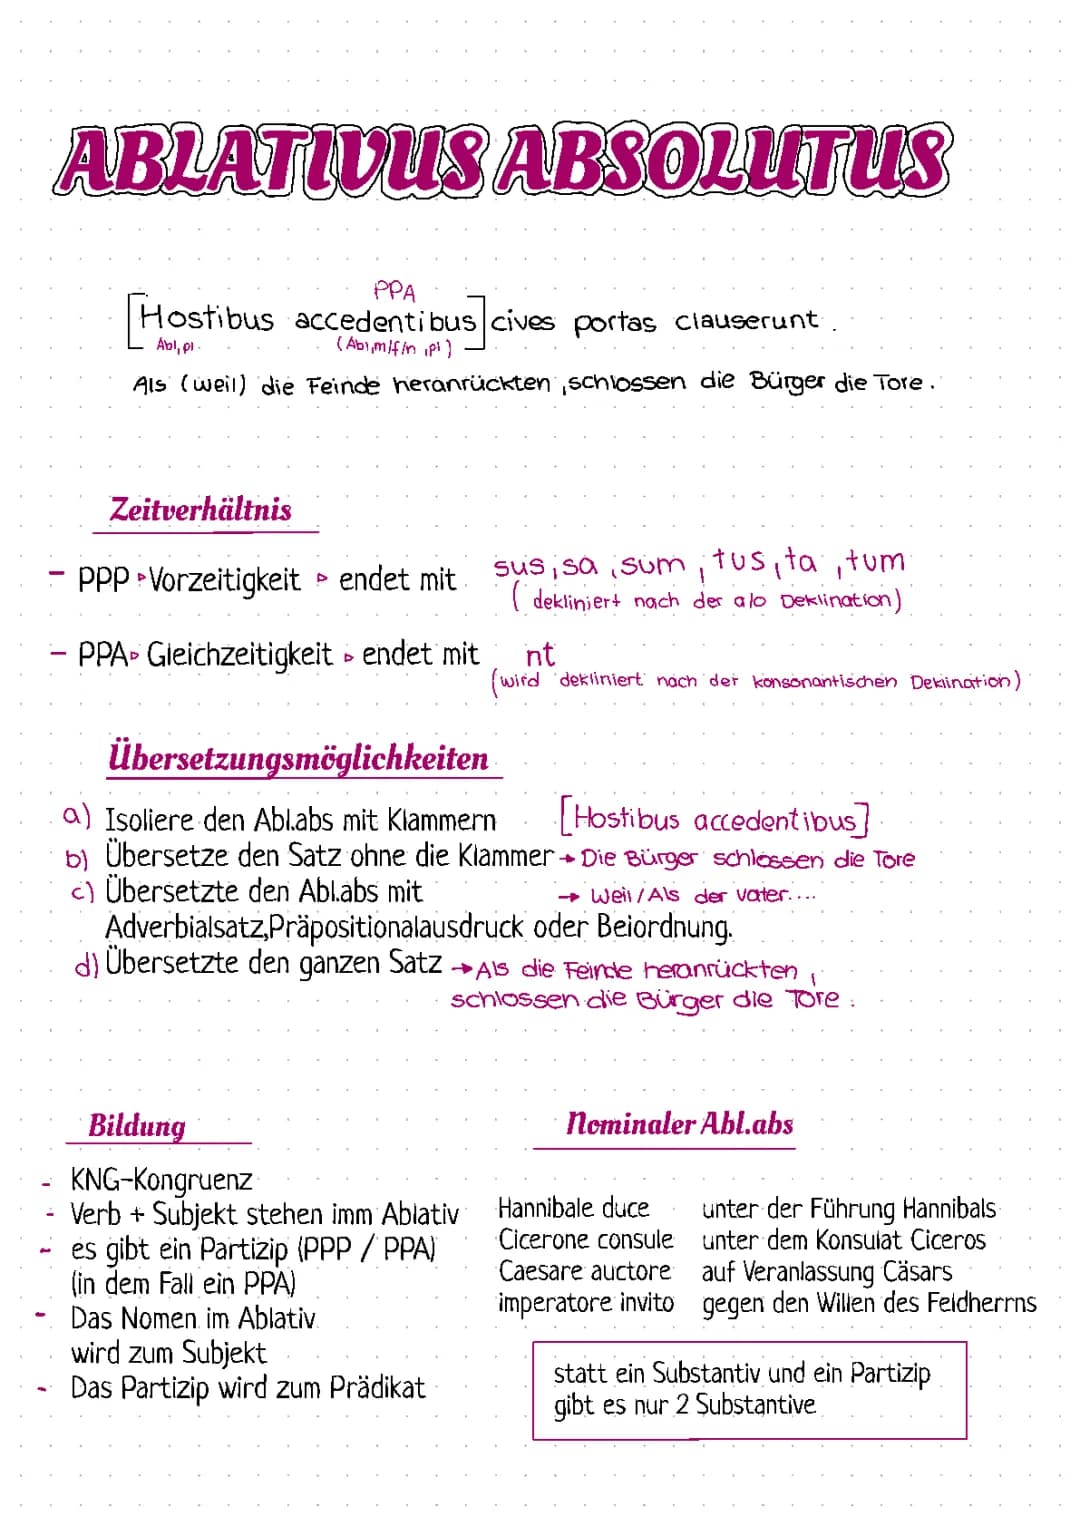 ABLATIVUS ABSOLUTUS
PPA
[Hostibus accedentibus] cives portas clauserunt.
Abl, pl. (Abl,m/f/n ,pl)
Als (weil) die Feinde heranrückten ,schlossen die Bürger die Tore.
Zeitverhältnis
- PPP ▹Vorzeitigkeit ▹ endet mit sus, sa, sum, tus, ta, tum
( dekliniert nach der a/o Deklination)
- PPA▹ Gleichzeitigkeit ▹ endet mit nt
(wird dekliniert nach der konsonantischen Deklination)
Übersetzungsmöglichkeiten
a) Isoliere den Abl.abs mit Klammern [Hostibus accedentibus]
b) Übersetze den Satz ohne die Klammer → Die Bürger schlossen die Tore
c) Übersetzte den Abl.abs mit → Weil/Als der Vater....
Adverbialsatz,Präpositionalausdruck oder Beiordnung.
d) Übersetzte den ganzen Satz → Als die Feinde heranrückten,
schlossen die Bürger die Tore.
Bildung
- KNG-Kongruenz
- Verb + Subjekt stehen imm Ablativ
- es gibt ein Partizip (PPP / PPA)
(in dem Fall ein PPA)
- Das Nomen im Ablativ
wird zum Subjekt
- Das Partizip wird zum Prädikat
Nominaler Abl.abs
Hannibale duce unter der Führung Hannibals
Cicerone consule unter dem Konsulat Ciceros
Caesare auctore auf Veranlassung Cäsars
imperatore invito gegen den Willen des Feldherrns
statt ein Substantiv und ein Partizip
gibt es nur 2 Substantive